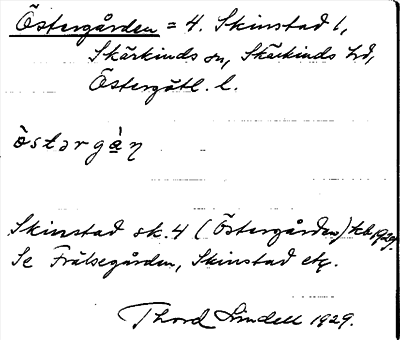 Östergården = 4. Skinstad 1,
Skärkinds sn, Skärkinds hd,
Östergötl. l.
òstərgàṇ
Skinstad sk. 4 (Östergården) kb 1929.
Se Frälsegården, Skinstad etc.
Thord Lindell 1929.